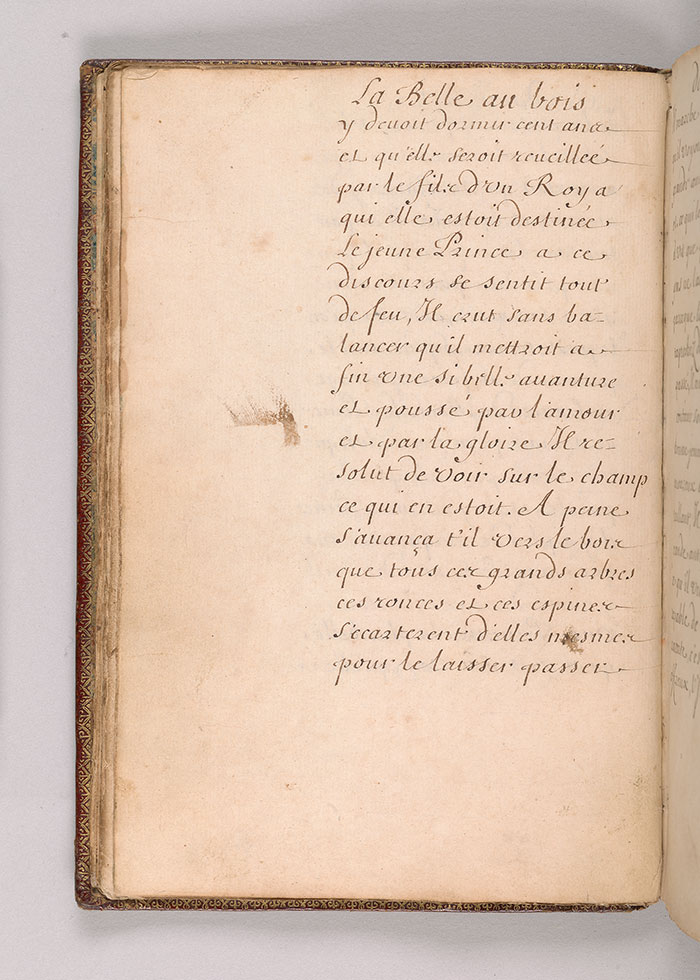 La Belle au bois
y devoit dormir cent ans
et qu'elle seroit reveilleé
par le fils d'un Roy a
qui elle estoit destinée
Le jeune Prince a ce
discours se sentit tout
de feu, Il crut sans ba-
lancer qu'il mettroit a
fin une si belle avanture
et poussé par l'amour
et par la gloire Il re-
solut de voir sur le champ
ce qui en estoit. A peine
s'avança t'il vers le bois
que tous ces grands arbres
ces ronces et ces espines
s'ecarterent d'elles mesmes
pour le laisser passer